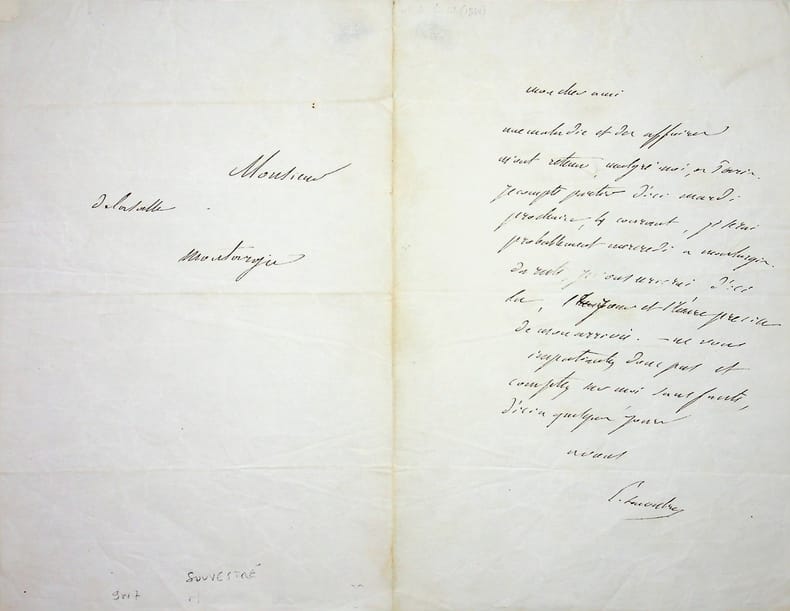 Monsieur
delasalle
montargis
SOUVESTRE
mon cher ami
une maladie et des affaires
m'ont retenu, malgré moi, a Paris.
je compte partir d'ici mardi
prochain, courant, je serai
probablement mercredi a montargis.
du reste, je vous ecrirai d'ici
la, le jour et l'heure precise
de mon arrivée. - ne vous
impatientez donc pas et
comptez sur moi sans faute,
d'ici a quelques jours
a vous